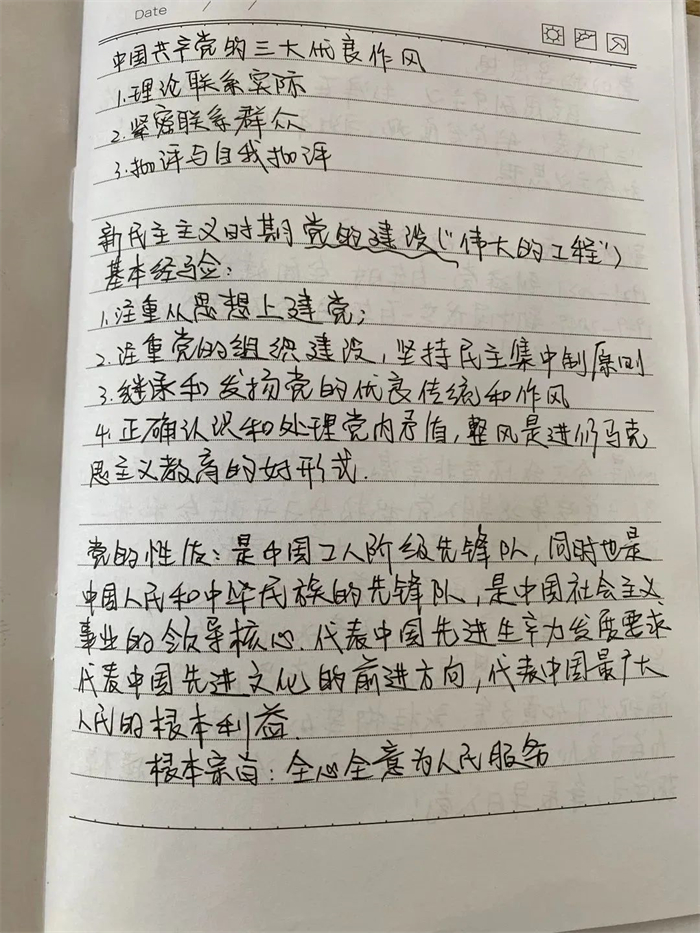 Date / /
中国共产党的三大优良作风
1.理论联系实际
2.紧密联系群众
3.批评与自我批评
新民主主义时期党的建设("伟大的工程")
基本经验:
1.注重从思想上建党;
2.注重党的组织建设,坚持民主集中制原则
3.继承和发扬党的优良传统和作风
4.正确认识和处理党内矛盾,整风是进行马克
思主义教育的好形式.
党的性质:是中国工人阶级先锋队,同时也是
中国人民和中华民族的先锋队,是中国社会主义
事业的领导核心.代表中国先进生产力发展要求
代表中国先进文化的前进方向,代表中国最广大
人民的根本利益.
根本宗旨:全心全意为人民服务